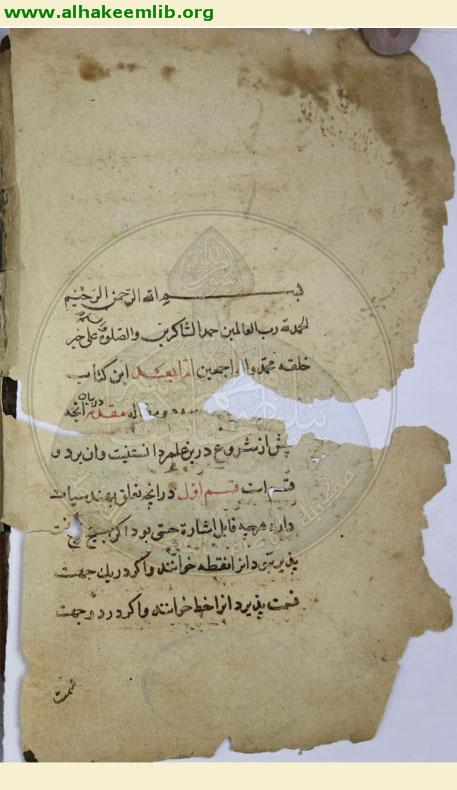 www.alhakeemlib.org
بسم الله الرحمن الرحیم
الحمد لله رب العالمین حمد الشاکرین والصلوة علی خیر
خلقه محمد واله اجمعین اما بعد این کتاب
مقدمه در بیان آنچه
پیش از شروع درین علم دانستنیست وان بر دو
قسم است قسم اول در انچه تعلق بهندسیات
دارد هرچه قابل اشارة حسی بود اگر هیچ قسمت
پذیر نبود انرا نقطه خوانند واکر در یک جهت
قسمت پذیرد انرا خط خوانند واکر در دو جهت
قسمت